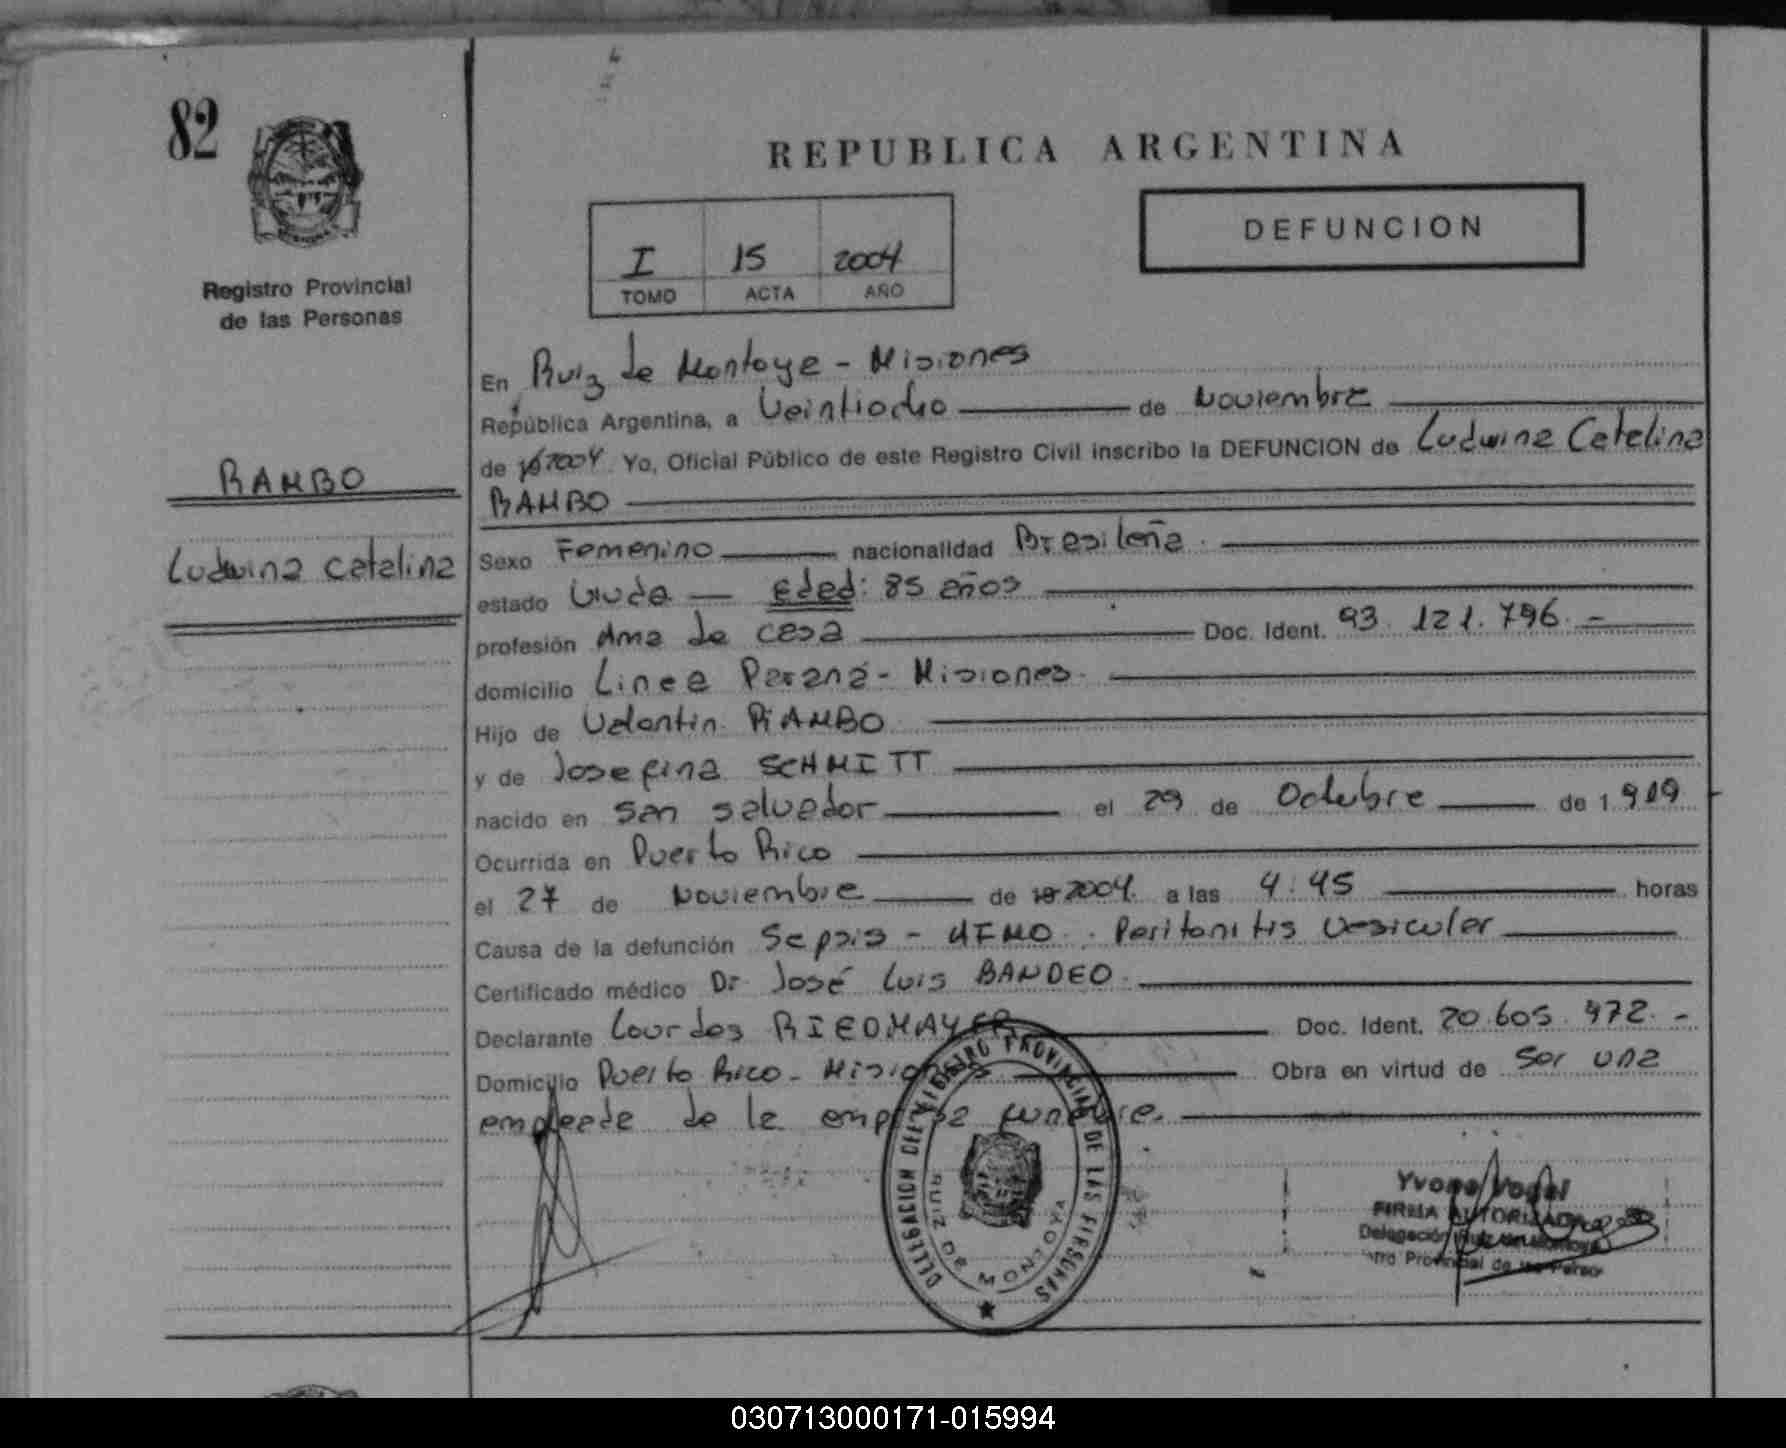 82
REPUBLICA ARGENTINA
I 15 2004
TOMO ACTA AÑO
DEFUNCION
Registro Provincial
de las Personas
RAMBO
Ludwina Catalina
En Ruiz de Montoya - Misiones
República Argentina, a Veintiocho de Noviembre
de 2004 Yo, Oficial Público de este Registro Civil inscribo la DEFUNCION de Ludwina Catalina
RAMBO
Sexo Femenino nacionalidad Brasileña.
estado Viuda - Edad: 85 años
profesión Ama de casa Doc. Ident. 93.121.796.-
domicilio Linea Paraná - Misiones.
Hijo de Valentin RAMBO
y de Josefina SCHMITT
nacido en San Salvador el 29 de Octubre de 1.919
Ocurrida en Puerto Rico
el 27 de Noviembre de 2004. a las 4:45 horas
Causa de la defunción Sepsis - Peritonitis Vesicular
Certificado médico Dr. José Luis BANDEO.
Declarante Lourdes RIEDMAYER Doc. Ident. 20.605.972.-
Domicilio Puerto Rico - Misiones Obra en virtud de Ser una
empleada de la empresa funebre.
DELEGACION DEL REGISTRO PROVINCIAL DE LAS PERSONAS
RUIZ DE MONTOYA
Yvone Vogel
FIRMA AUTORIZADA
Delegación Ruiz de Montoya
Provincial de las Person
030713000171-015994